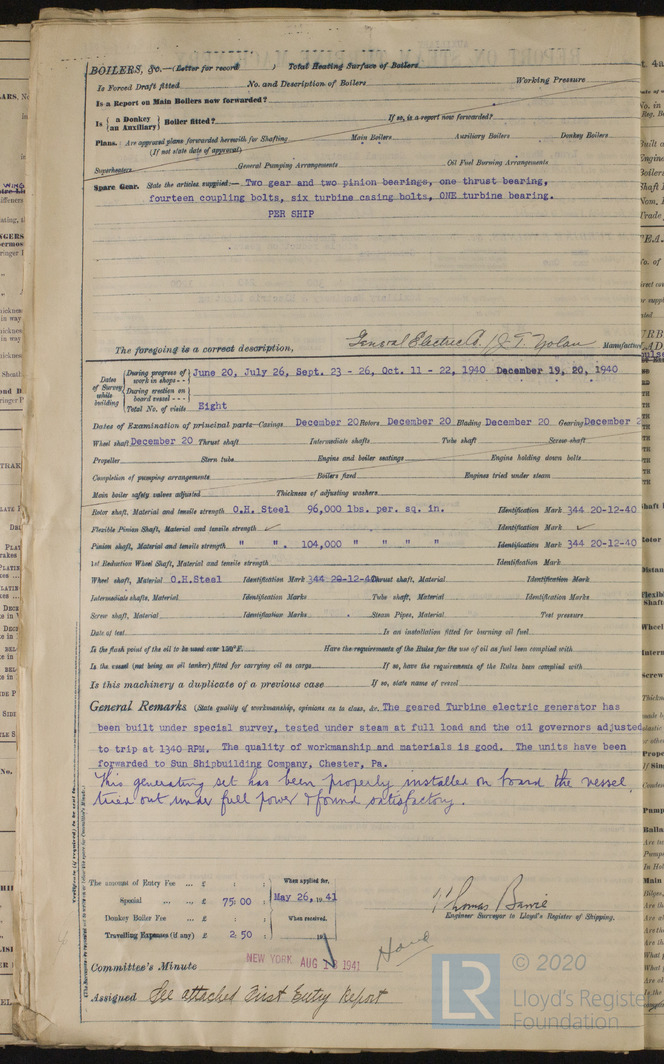 BOILERS, &c.—(Letter for record ) Total Heating Surface of Boilers
Is Forced Draft fitted No. and Description of Boilers Working Pressure
Is a Report on Main Boilers now forwarded?
Is { a Donkey / an Auxiliary } Boiler fitted? If so, is a report now forwarded?
Plans. Are approved plans forwarded herewith for Shafting Main Boilers Auxiliary Boilers Donkey Boilers
(If not state date of approval)
Superheaters General Pumping Arrangements Oil Fuel Burning Arrangements
Spare Gear. State the articles supplied:— Two gear and two pinion bearings, one thrust bearing,
fourteen coupling bolts, six turbine casing bolts, ONE turbine bearing.
PER SHIP
The foregoing is a correct description, General Electric Co. / J. T. Nolan Manufactur
Dates of Survey while building
During progress of work in shops - - June 20, July 26, Sept. 23 - 26, Oct. 11 - 22, 1940 December 19, 20, 1940
During erection on board vessel - - -
Total No. of visits Eight
Dates of Examination of principal parts—Casings December 20 Rotors December 20 Blading December 20 Gearing December 2
Wheel shaft December 20 Thrust shaft Intermediate shafts Tube shaft Screw shaft
Propeller Stern tube Engine and boiler seatings Engine holding down bolts
Completion of pumping arrangements Boilers fixed Engines tried under steam
Main boiler safety valves adjusted Thickness of adjusting washers
Rotor shaft, Material and tensile strength O.H. Steel 96,000 lbs. per. sq. in. Identification Mark 344 20-12-40
Flexible Pinion Shaft, Material and tensile strength ✓ Identification Mark ✓
Pinion shaft, Material and tensile strength " ". 104,000 " " " " Identification Mark 344 20-12-40
1st Reduction Wheel Shaft, Material and tensile strength Identification Mark
Wheel shaft, Material O.H.Steel Identification Mark 344 20-12-40 Thrust shaft, Material Identification Mark
Intermediate shafts, Material Identification Marks Tube shaft, Material Identification Marks
Screw shaft, Material Identification Marks Steam Pipes, Material Test pressure
Date of test Is an installation fitted for burning oil fuel
Is the flash point of the oil to be used over 150°F. Have the requirements of the Rules for the use of oil as fuel been complied with
Is the vessel (not being an oil tanker) fitted for carrying oil as cargo If so, have the requirements of the Rules been complied with
Is this machinery a duplicate of a previous case If so, state name of vessel
General Remarks (State quality of workmanship, opinions as to class, &c. The geared Turbine electric generator has
been built under special survey, tested under steam at full load and the oil governors adjusted
to trip at 1340 RPM. The quality of workmanship and materials is good. The units have been
forwarded to Sun Shipbuilding Company, Chester, Pa.
This generating set has been properly installed on board the vessel,
tried out under full power & found satisfactory.
The amount of Entry Fee ... £ : : When applied for,
Special ... ... £ 75:00 : May 26, 1941
Donkey Boiler Fee ... £ : : When received,
Travelling Expenses (if any) £ 2 50 : 19
Thomas
Engineer Surveyor to Lloyd's Register of Shipping.
Committee's Minute NEW YORK AUG 13 1941
Assigned See attached First Entry Report
LR
© 2020
Lloyd's Register
Foundation